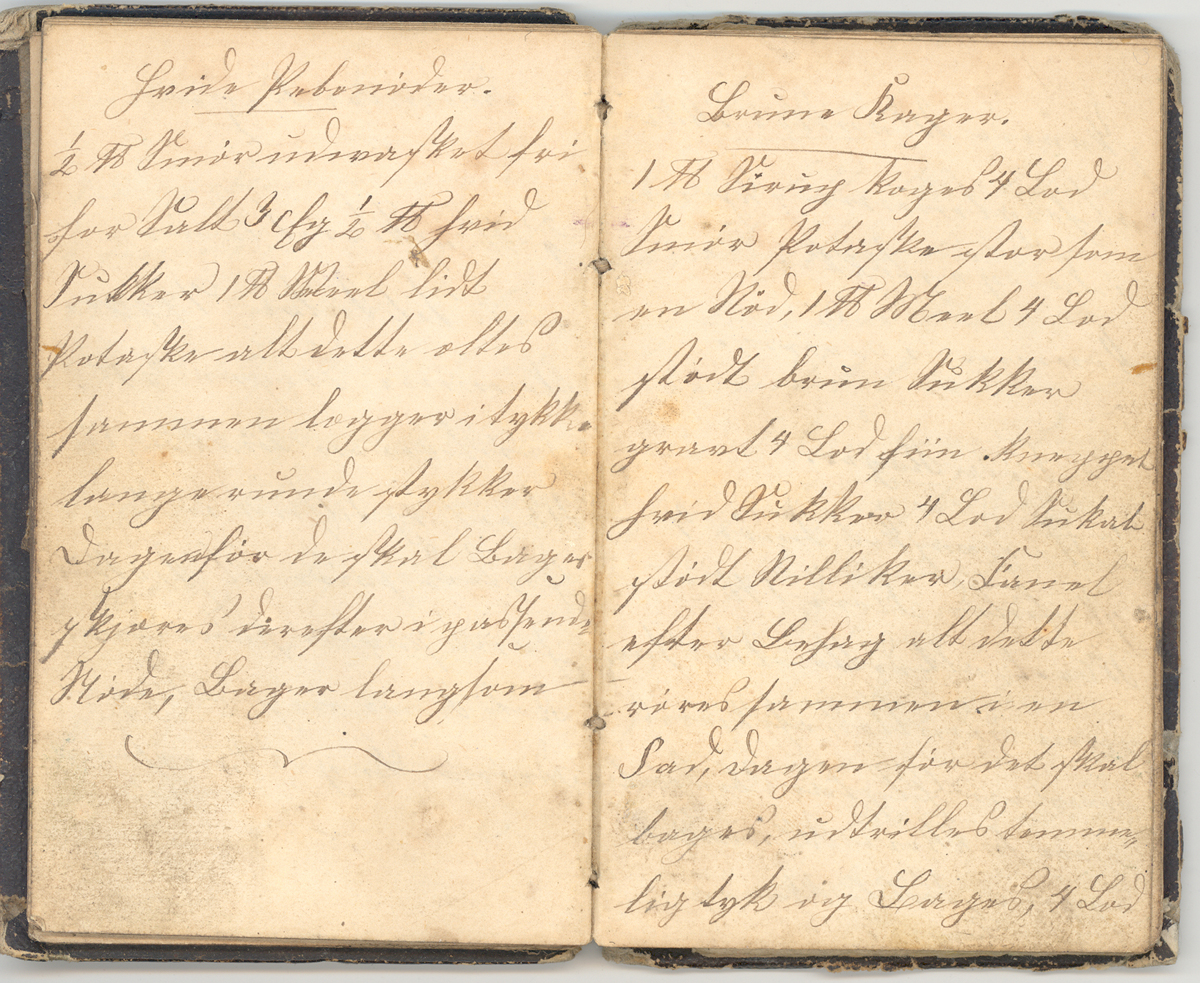 Hvide Pebenöder.
½ ℔ Smör udvasket fri
for Salt 3 Æg ½ ℔ hvid
Sukker 1 ℔ Meel lidt
Potaske alt dette æltes
sammen lægger i tykke
lange runde stykker
Dagen för de skal Bages
skjæres derefter i passende
Nöde, Bager langsom
Brune Kager.
1 ℔ Sirup koges 4 Lod
Smör Potaske stor som
en Nöd, 1 ℔ Meel 4 Lod
stödt brun Sukker
gravt 4 Lod fiin kneppet
hvid Sukker 4 Lod Sukat
stödt Nilliker, Fanel
efter Behag alt dette
röres sammen i en
Fad, Dagen för det skal
bages, udtrilles temme-
lig tyk og Bages, 4 Lod